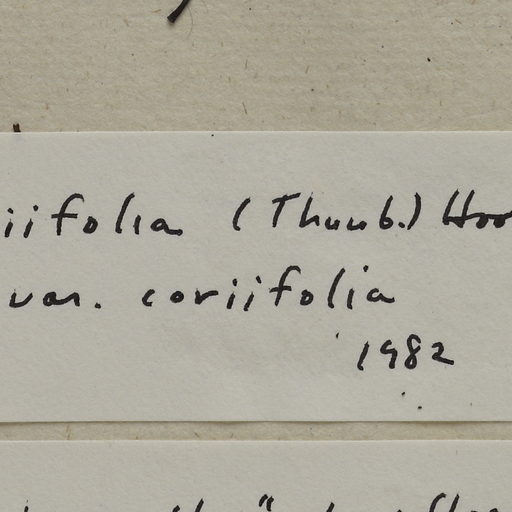 iifolia (Thunb.) Hoo
var. coriifolia
1982